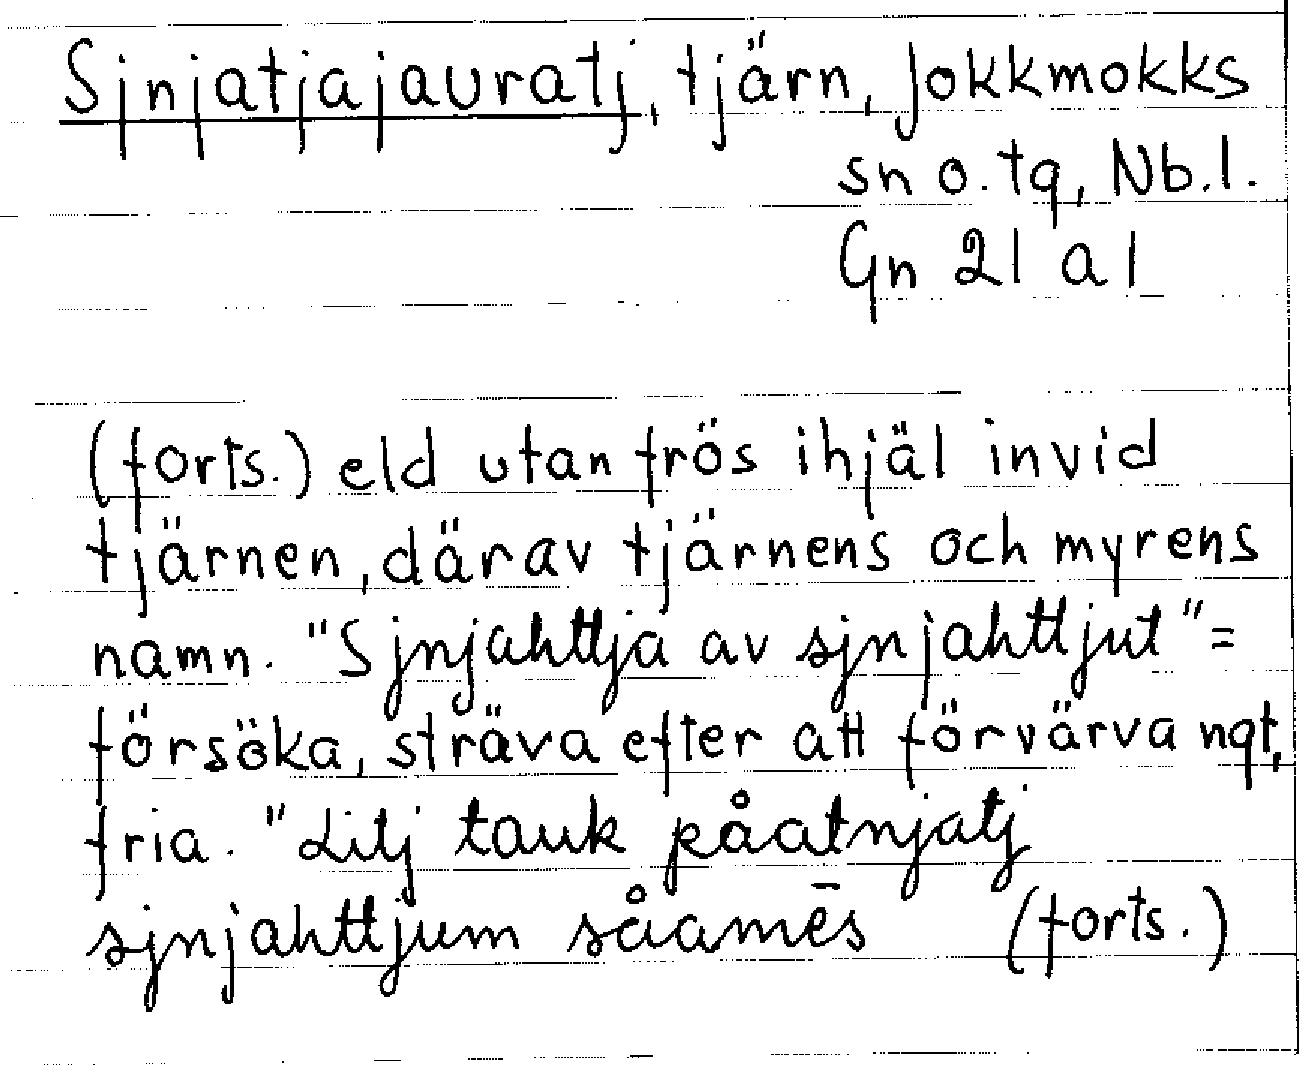 Sjnjatjajauratj, tjärn, Jokkmokks
sn o. tg, Nb.l.
Gn 21 a 1
(forts.) eld utan frös ihjäl invid
tjärnen, därav tjärnens och myrens
namn. "Sjnjahttja av sjnjahttjut" =
försöka, sträva efter att förvärva ngt,
fria. "Litj tauk påatnjatj
sjnjahttjum såamēs (forts.)